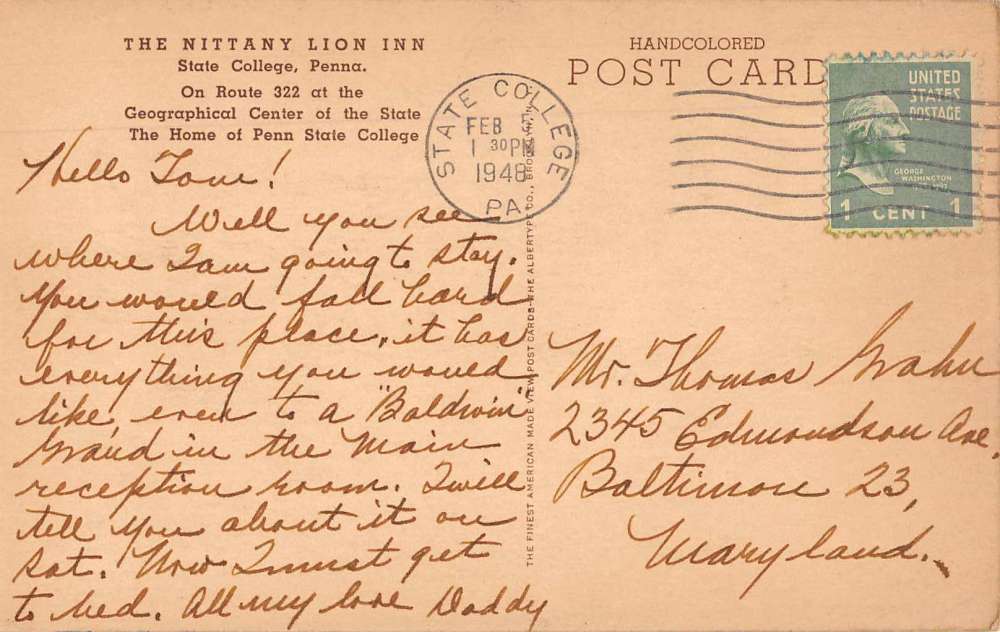 THE NITTANY LION INN
State College, Penna.
On Route 322 at the
Geographical Center of the State
The Home of Penn State College
HANDCOLORED
POST CARD
STATE COLLEGE
FEB
1 30 PM
1948
PA.
UNITED
STATES
POSTAGE
GEORGE
WASHINGTON
1 CENT 1
THE FINEST AMERICAN MADE VIEW POST CARDS—THE ALBERTYPE CO., BROOKLYN, N.
Hello Tom!
Well you see
where I am going to stay.
You would fall hard
for this place, it has
everything you would
like, even to a "Baldwin"
Grand in the main
reception room. I will
tell you about it on
Sat. Now I must get
to bed. All my love Daddy
Mr. Thomas Grahn
2345 Edmondson Ave,
Baltimore 23,
Maryland.